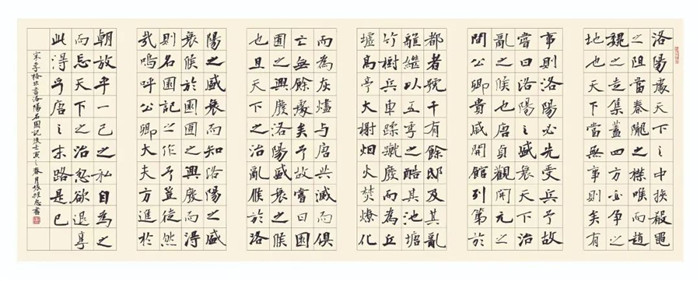 洛陽處天下之中挾殽黽
之阻當秦隴之襟喉而趙
魏之走集蓋四方必爭之
地也天下當無事則矣有
事則洛陽必先受兵予故
嘗曰洛陽之盛衰天下治
亂之候也唐貞觀開元之
間公卿貴戚開館列第於
都者號千有餘邸及其亂
離繼以五季之酷其池塘
竹樹兵車蹂蹴廢而為丘
墟高亭大榭烟火焚燎化
而為灰燼與唐共滅而俱
亡無餘處矣予故嘗曰園
囿之興廢洛陽盛衰之候
也且天下之治亂候於洛
陽之盛衰而知洛陽之盛
衰候於園圃之興廢而得
則名園記之作予豈徒然
哉嗚呼公卿大夫方進於
朝放乎一己之私自為之
而忘天下之治忽欲退享
此得乎唐之末路是已
宋李格非書洛陽名園記後壬寅之春月張書